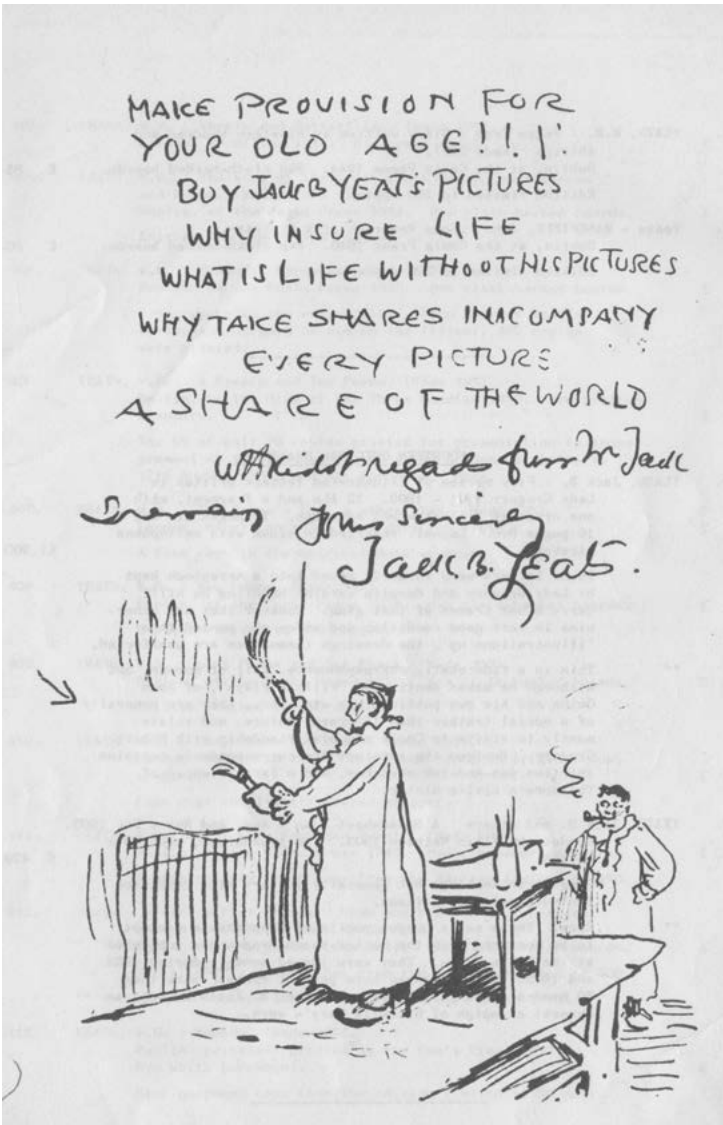 MAKE PROVISION FOR
YOUR OLD AGE!!!!
BUY JACK B YEAT'S PICTURES
WHY INSURE LIFE
WHAT IS LIFE WITHOUT HIS PICTURES
WHY TAKE SHARES IN A COMPANY
EVERY PICTURE
A SHARE OF THE WORLD
With kindest regards from Mr Jack
yours sincerely
Jack. B. Yeats.